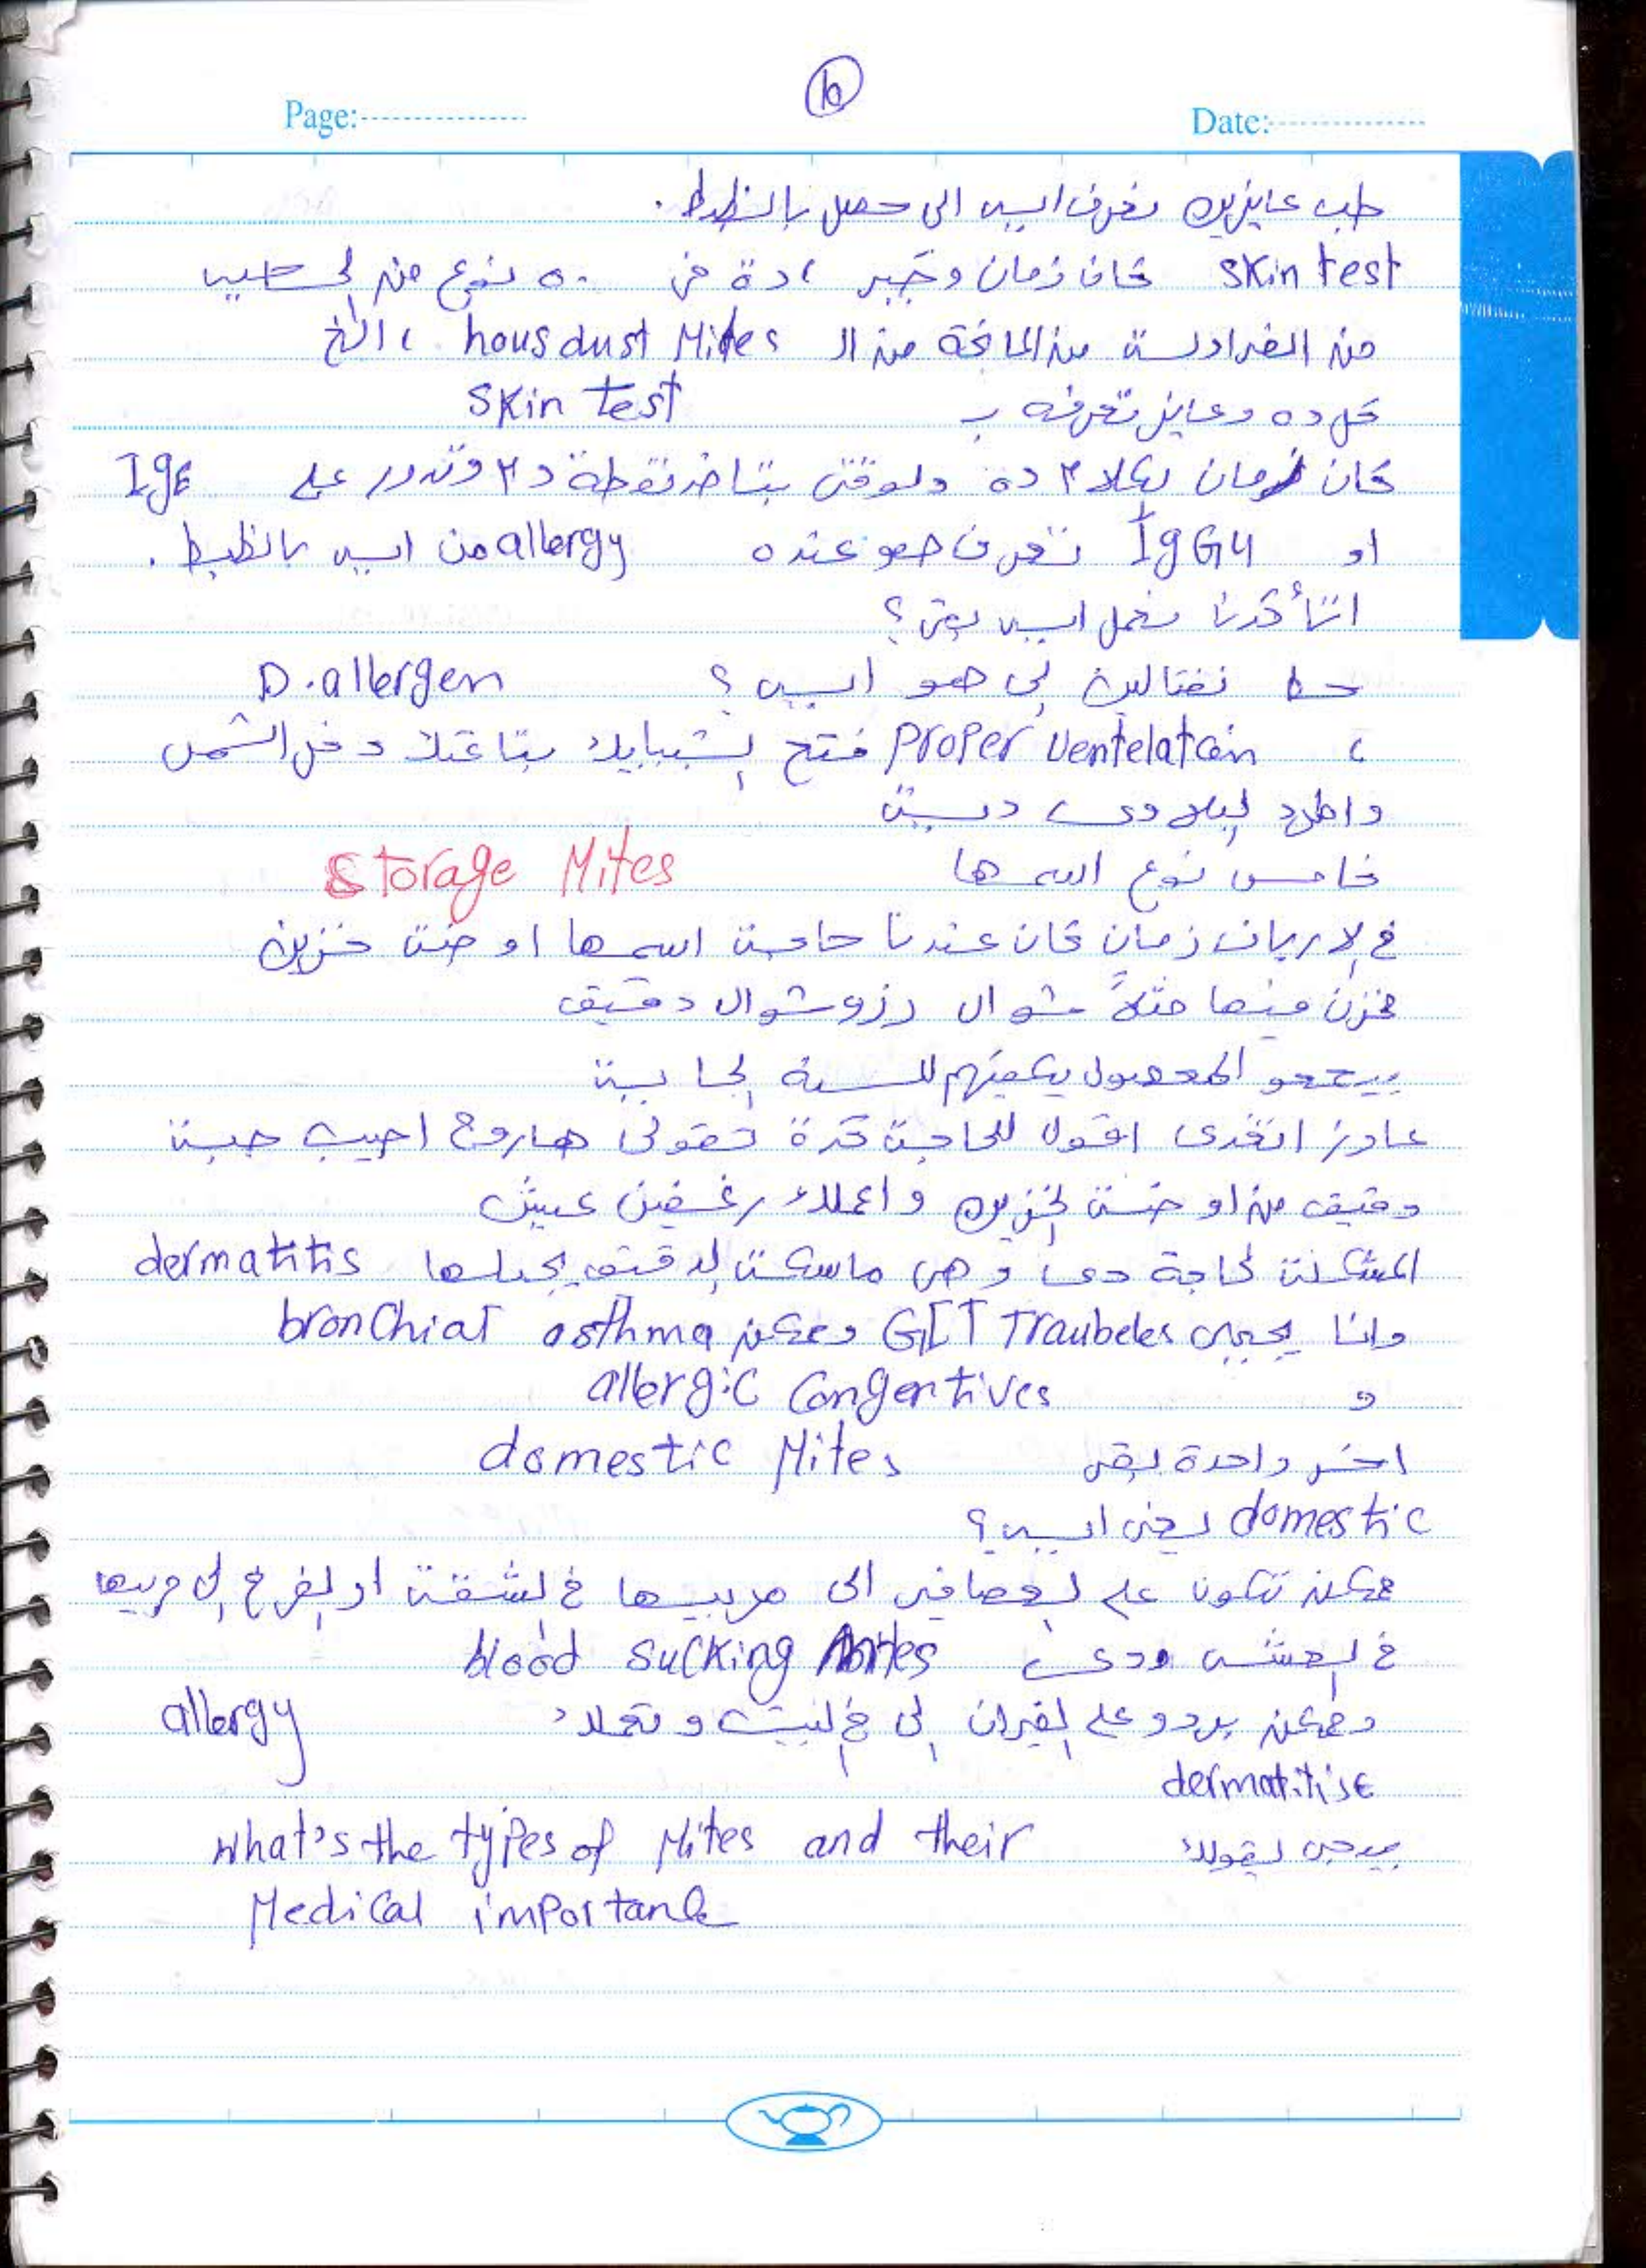 10
Page:
Date:
طب عايزين نعرف ايه الى حصل بالظبط.
skin test كان زمان وخبير مادة من ٥٠ نوع من الحساسيه
من الفراولة من المانجة من ال hous dust Mites ، الخ
كل ده وعايز تعرفه ب skin test
كان زمان الكلام ده دلوقتى بتاخد نقطة دم وتدور على IgE
او IgG4 تعرف هو عنده allergy من ايه بالظبط.
انا أقدرنا نعمل ايه بقى؟
حط نفتالين لى هو ايه؟ D.allergen
، proper Ventelatoin فتح الشبابيك بتاعتك دخل الشمس
واطرد البلاوى ديت
خامس نوع اسمها Storage Mites
فى الارياف زمان كان عندنا حاجة اسمها اوضة خزين
نخزن فيها مثلاً شوال رز وشوال دقيق
بيجو المحصول يكفيهم للسنة الجاية
عاوز اتغدى اقول للحاجة كدة تقولى هاروح اجيب حبة
دقيق من اوضة الخزين واعملك رغفين عيش
المشكلة الحاجة دى وهى ماسكة الدقيق يجيلها dermatitis
وانا يجيلى GIT Traubeles وممكن bronchial asthma
و allergic Congentives
اخر واحدة بقى domestic Mites
domestic يعنى ايه؟
ممكن تكون على العصافير الى مربيها فى الشقة او الفراخ الى مربيها
فى العشه ودى blood sucking Mites
وممكن يردو على الفيران الى فى البيت و تعملك allergy
dermatitise
بيجى يقولك what's the types of Mites and their
Medical importance